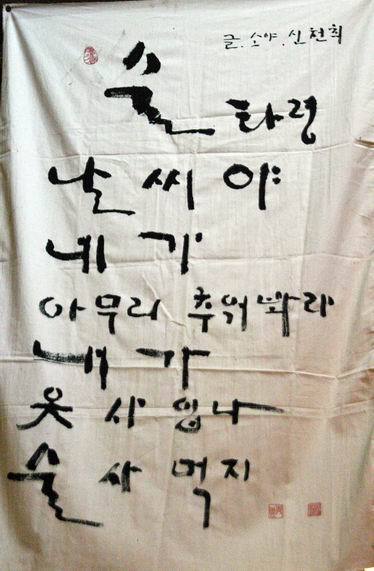 글. 소야. 신천희
술타령
날씨야
네가
아무리 추워봐라
내가
옷 사 입나
술 사 먹지